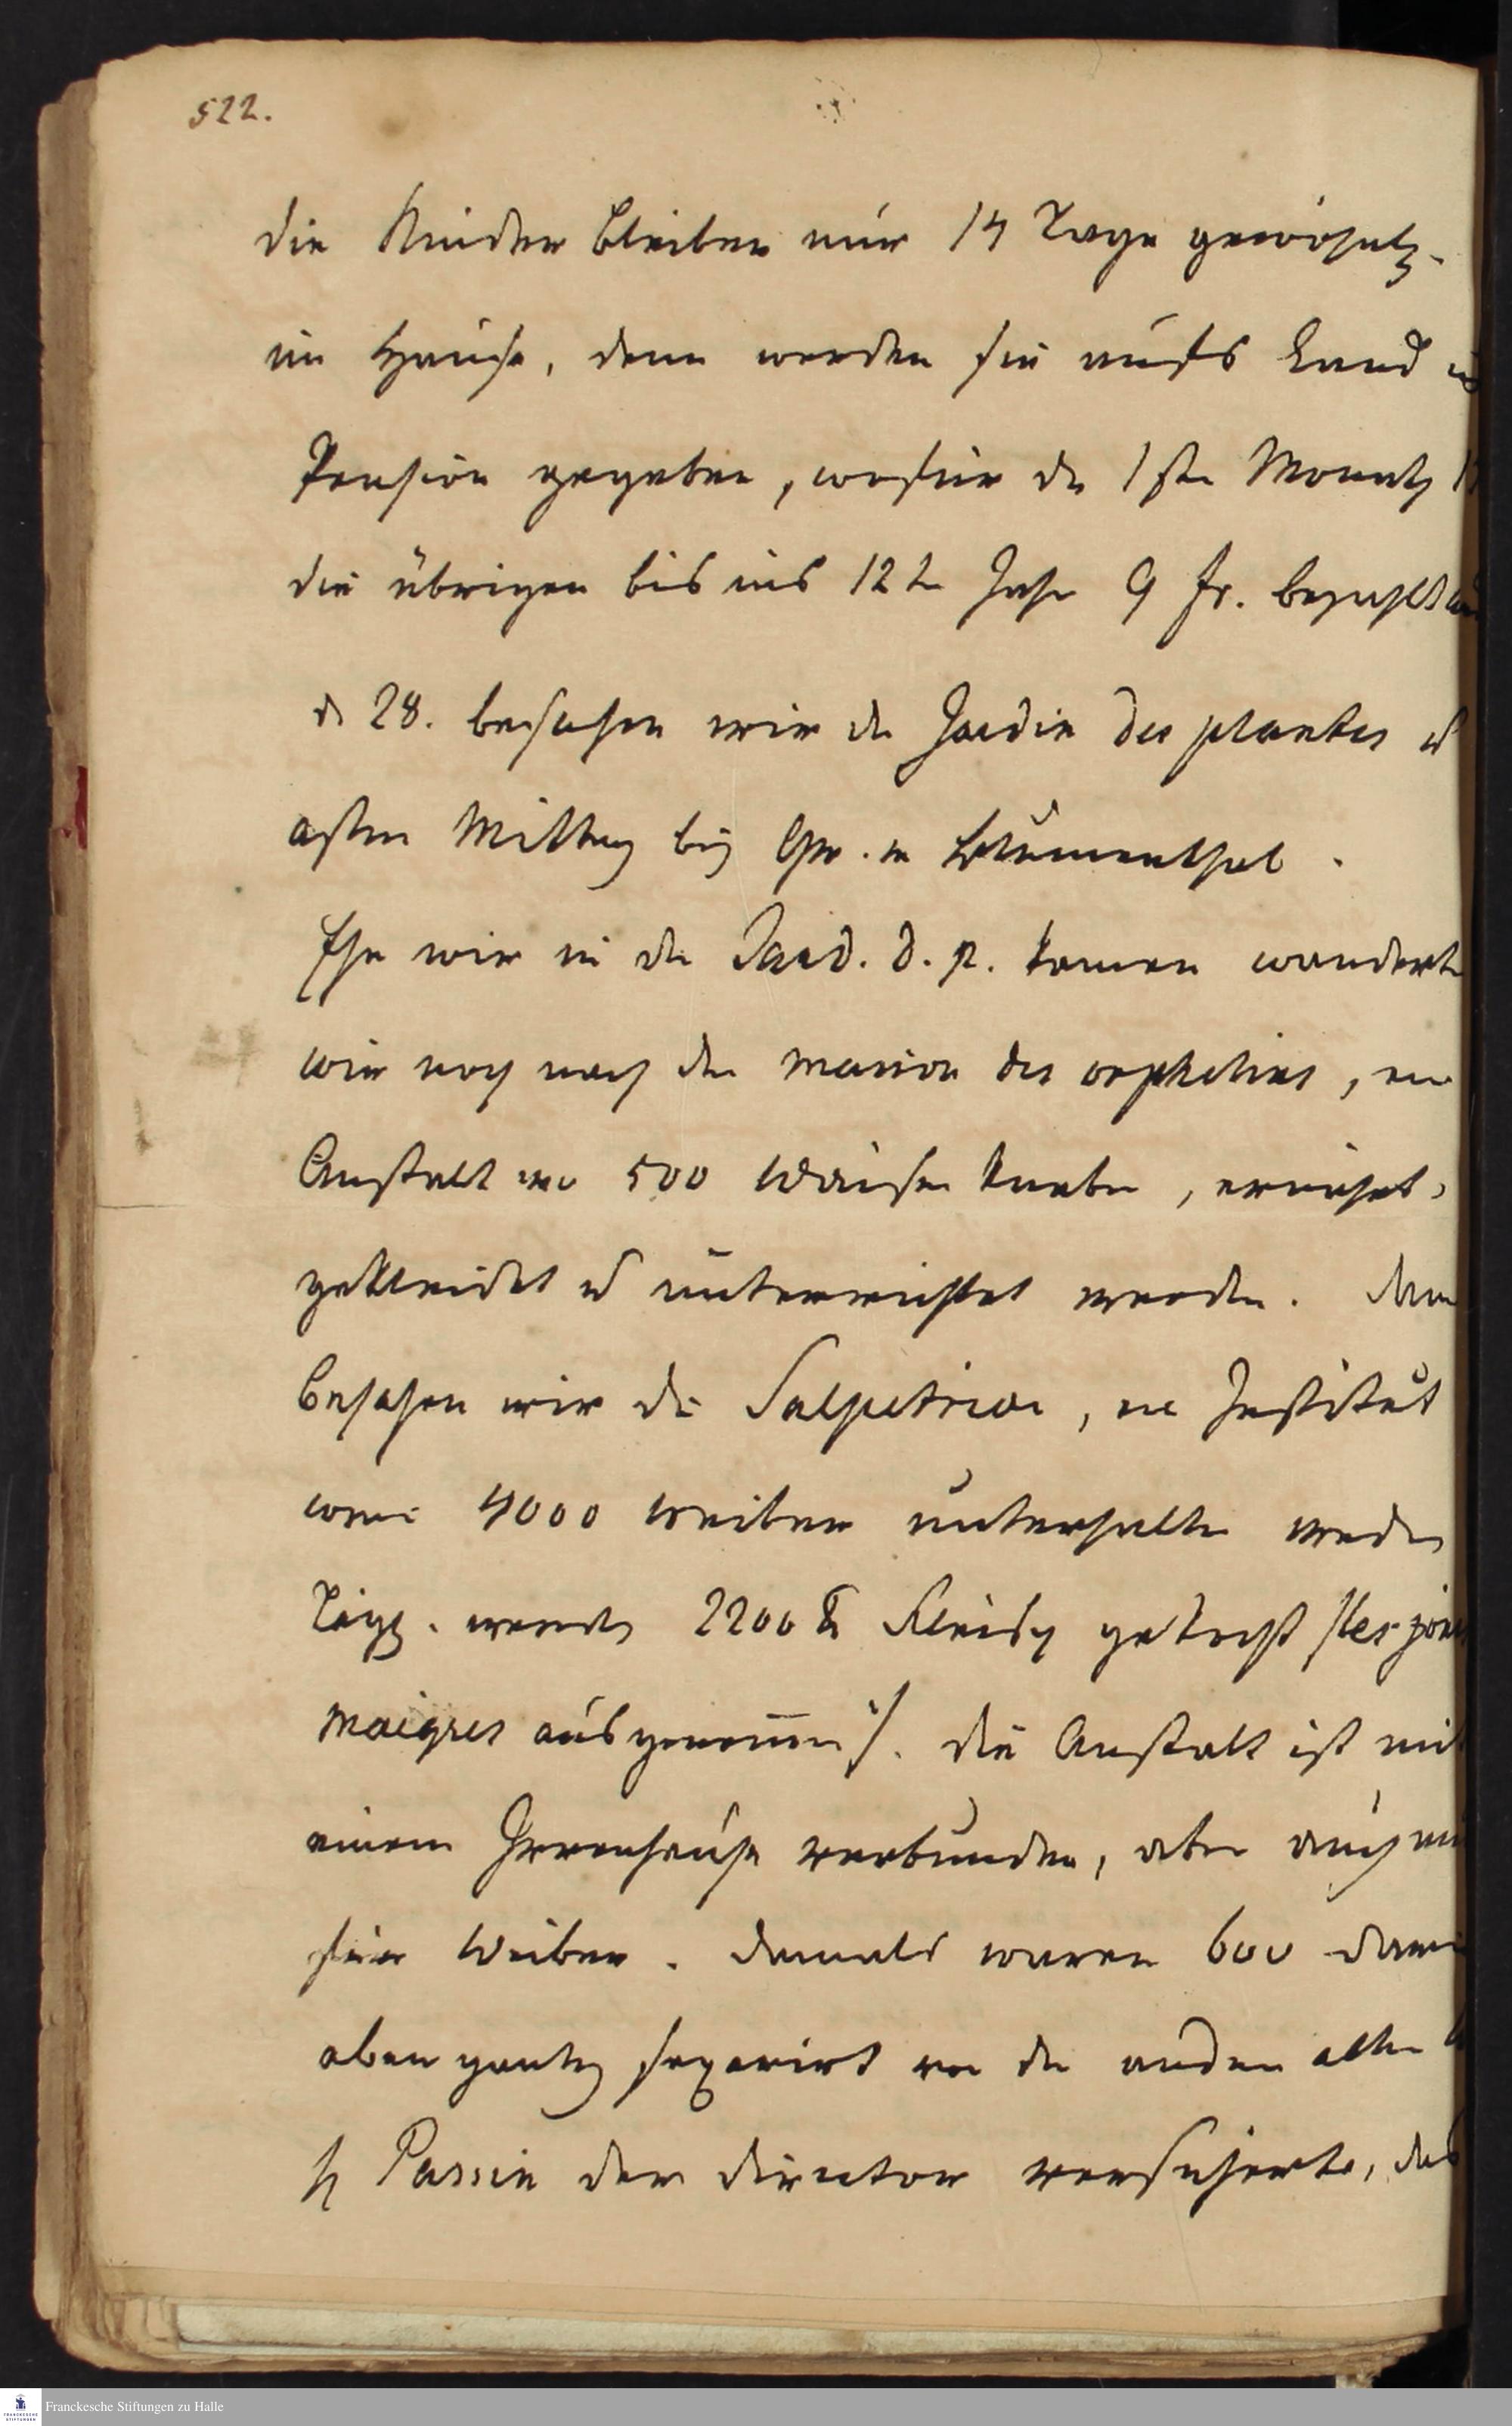 522.
die Kinder bleiben nur 14 Tage gewöhnl.
im Hause, dann werden sie aufs Land
Pension gegeben, wofür de 1ste Monath
die übrigen bis ins 12te Jahr 9 fr. bezahlt
d 28. besahen wir de Jardin des plantes u
assen Mittag bey Gr. v Blumenthal.
Ehe wir in de Jard. d. p. kamen wanderte
wir noch nach der maison des orphelins, eine
Anstalt wo 500 Waisen Knaben, ernährt,
gekleidet u unterrichtet werden. Dann
besahen wir die Salpetriere, ein Institut
worin 4000 Weiber unterhalten werden
Tägl. werden 2200 ℔ Fleisch gekocht /:les jours
maigres ausgenom̅en:/. Die Anstalt ist mit
einem Irrenhause verbunden, aber auch nur
für Weiber. Damals waren 600 darin
aber gantz separirt von den andern alten
H Passin der Director versicherte, das
Franckesche Stiftungen zu Halle